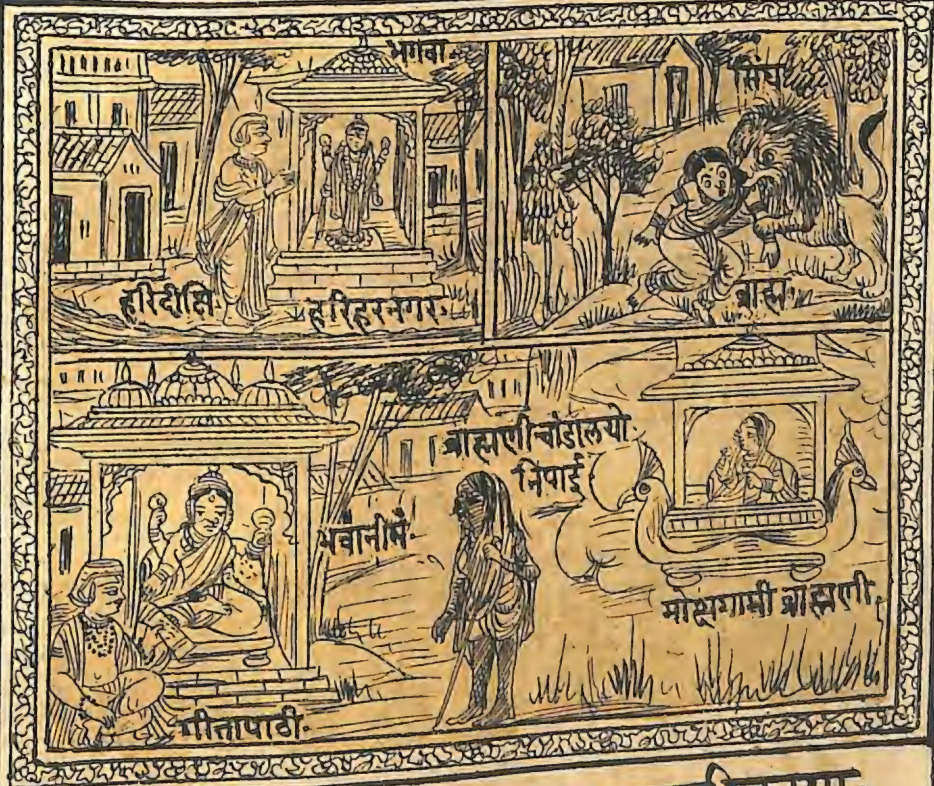 भगवा.
हरिदीक्षि.
हरिहरनगर.
सिंघ
ब्राह्म.
ब्राह्मणीचांडालयो.
निपाई
भवानीमं.
मोक्षगामीब्राह्मणी.
गीतापाठी.